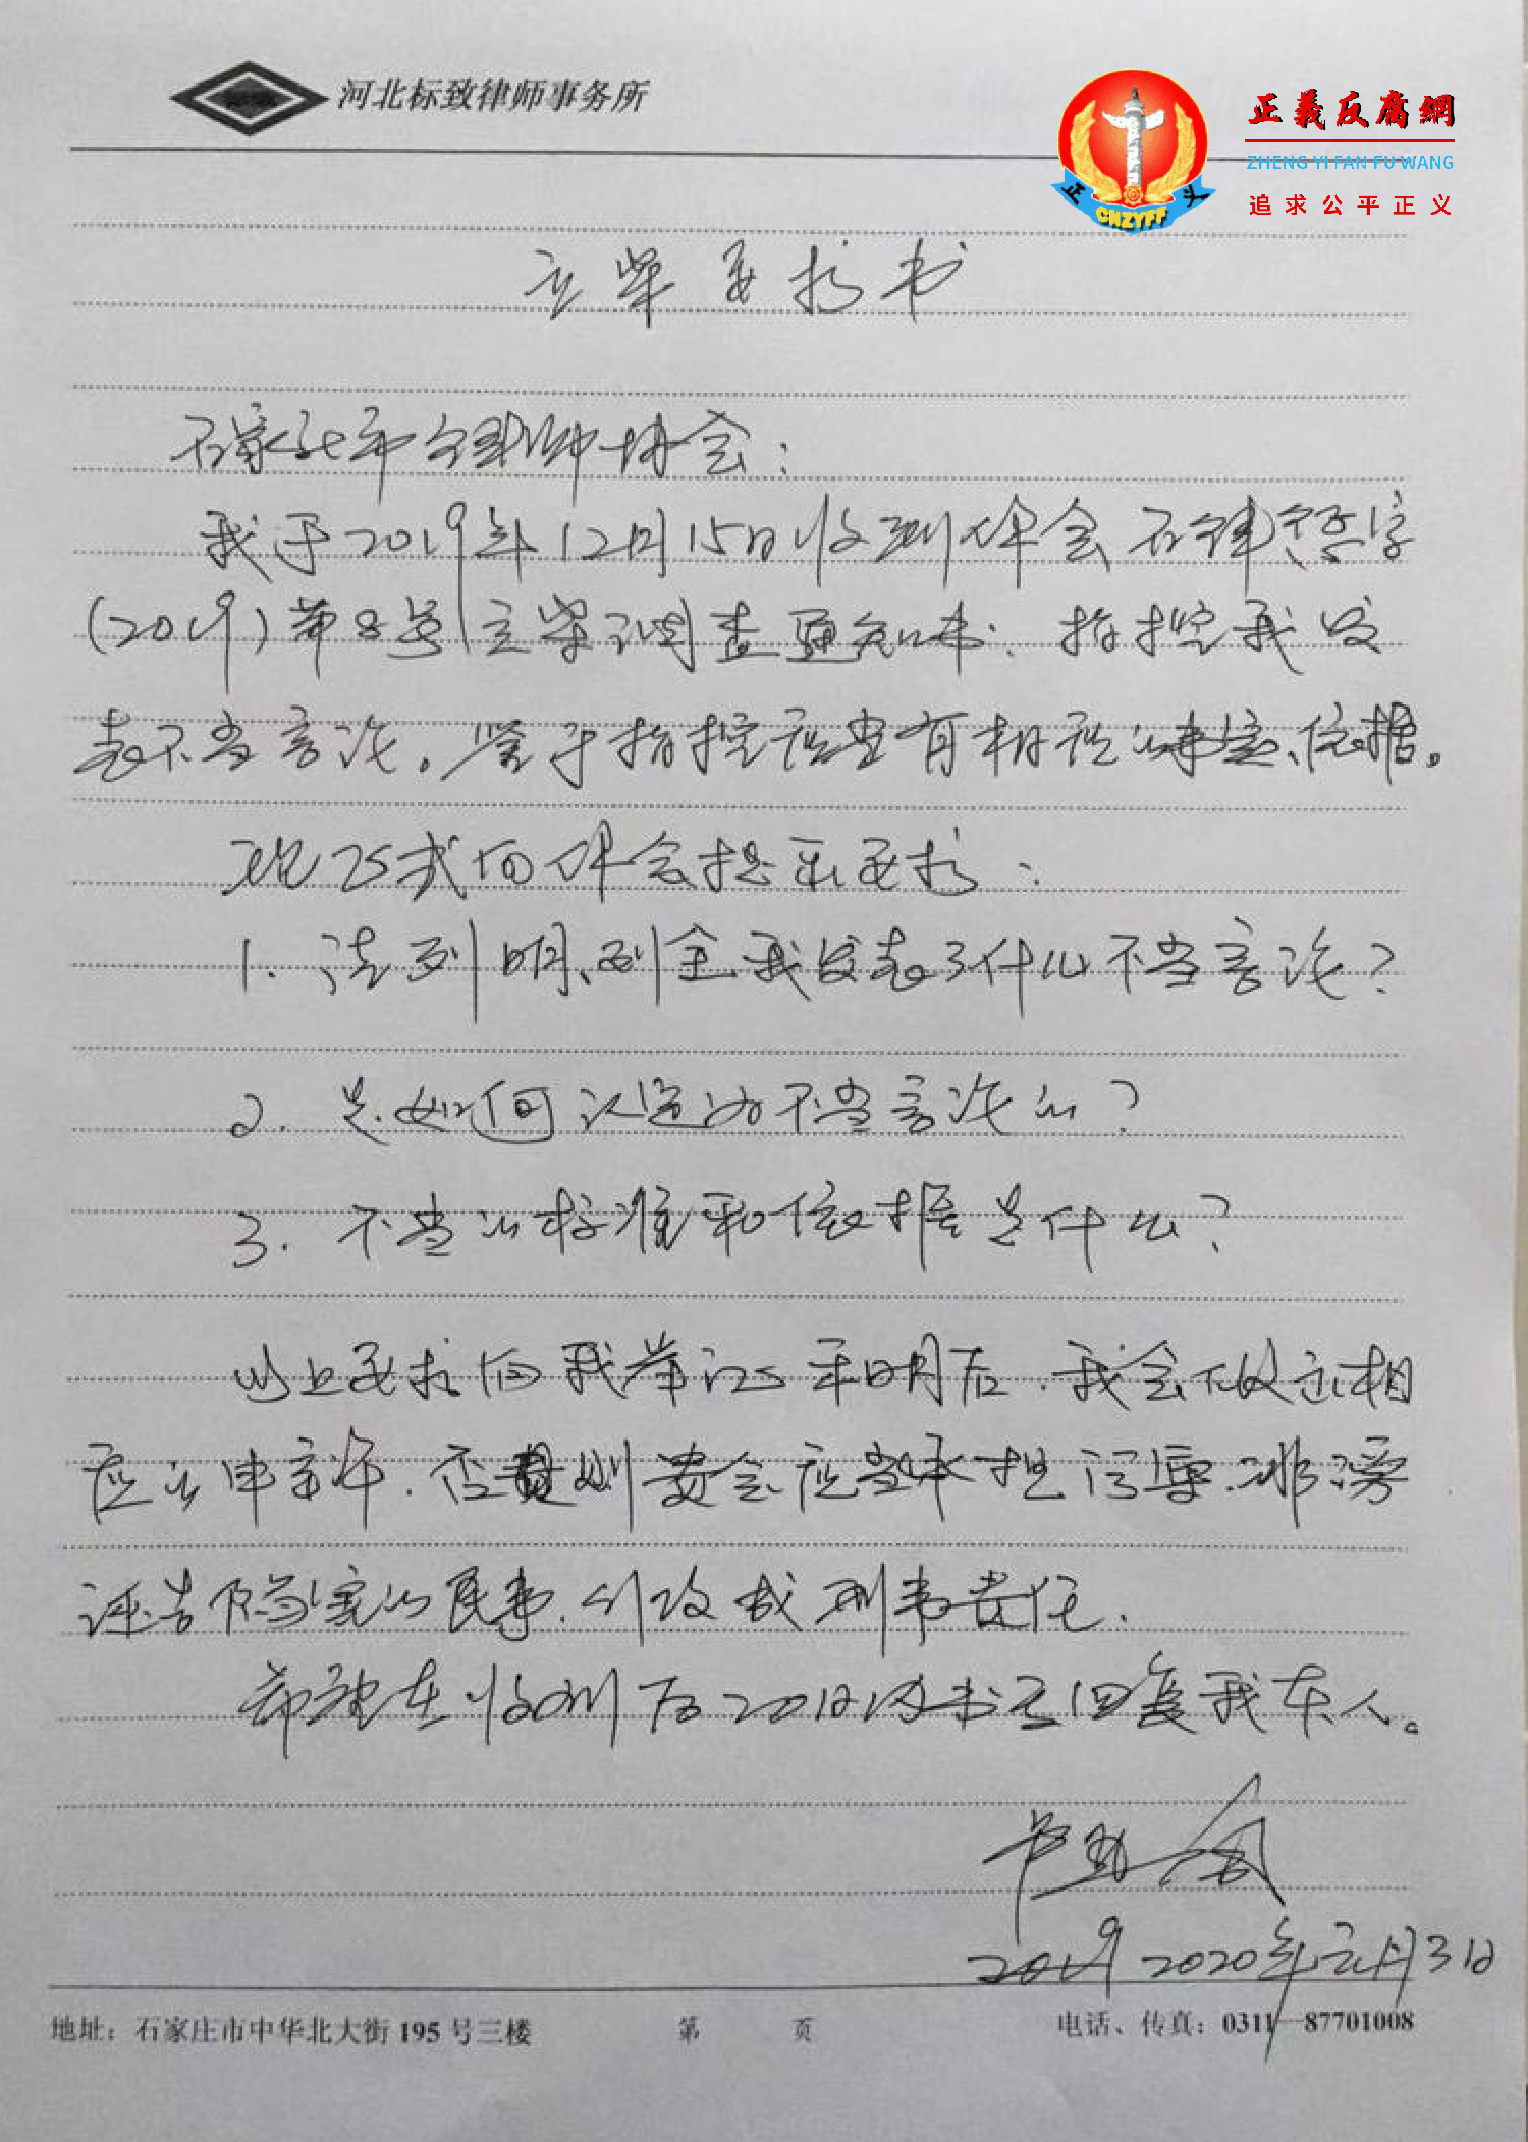 河北标致律师事务所
正義反腐網
ZHENG YI FAN FU WANG
追求公平正义
正 CNZYFF 义
立案要求书
石家庄市律师协会：
我于2019年12月15日收到律会石律字
(2019)第8号立案调查通知书，指控我发
表不当言论。鉴于指控应当有相应的事实、依据。
现正式向律会提出要求：
1. 请列明、列全我发表了什么不当言论？
2. 是如何认定为不当言论的？
3. 不当的标准和依据是什么？
以上要求向我举证、列明后，我会做出相
应的申辩，否则贵会应当承担污辱、诽谤
诬告陷害的民事、行政或刑事责任。
希望在收到后20日内书面回复我本人。
2019 2020年元月3日
地址：石家庄市中华北大街195号三楼
第 页
电话、传真：0311—87701008